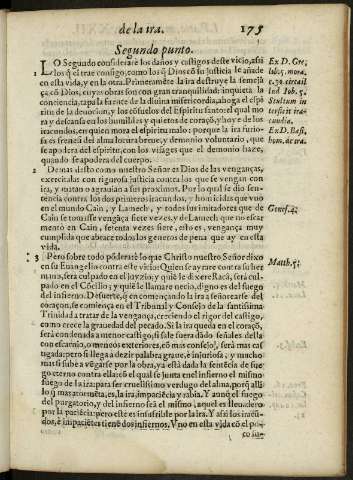 de la ira. 175
Segundo punto.
LO Segũdo considerare los daños y castigos deste vicio, assi
1 los q̃ el trae consigo, como los q̃ Dios cõ su justicia le añade
en esta vida, y en la otra. Primeramẽte la ira destruye la semejã
ça cõ Dios, cuyas obras son con gran tranquilidad: inquieta la
conciencia, tapa la fuente de la divina misericordia, ahoga el espi
ritu de la deuocion, y los cõsuelos del Espiritu santo: el qual mo
ra y descansa en los humildes y quietos de coraçõ, y huye de los
iracundos, en quien mora el espiritu malo: porque la ira furio-
sa es frenesi del alma, locura breue, y demonio voluntario, que
se apodera del espiritu, con los visages que el demonio haze,
quando se apodera del cuerpo.
2 Demas desto como nuestro Señor es Dios de las venganças,
exercitalas con rigurosa justicia contra los que se vengan con
ira, y matan o agrauian a sus proximos. Por lo qual se dio sen-
tencia contra los dos primeros iracundos, y homicidas que vuo
en el mundo Cain, y Lamech, y todos sus imitadores que de
Cain se tomasse vengãça siete vezes, y de Lamech que no escar
mento en Cain, setenta vezes siete, esto es, vengança muy
cumplida que abrace todos los generos de pena que ay en esta
vida.
3 Pero sobre todo põderarè lo que Christo nuestro Señor dixo
en su Euangelio contra este vicio: Quien se ayrare contra su her
mano, será culpado en el juyzio; y quiẽ le dixere Racà, serà cul-
pado en el Cõcilio; y quiẽ le llamare necio, digno es del fuego
del infierno. De suerte, q̃ en començando la ira a señorearse del
coraçon, se comiença en el Tribunal y Consejo de la santissima
Trinidad a tratar de la vengança, creciendo el rigor del castigo,
como crece la grauedad del pecado. Si la ira queda en el coraçõ,
serà condenada a menor castigo; si sale fuera dãdo señales della
con escarnio, o meneos exteriores, cõ mas consejo, serà mas cas
tigada; pero si llega a dezir palabra graue, è injuriosa, y mucho
mas si sube a vẽgarse por la obra, ya està dada la sentẽcia de fue
go eterno contra ella: cõ el qual se junta en el infierno el mismo
fuego de la ira: para ser cruelissimo verdugo del alma, porq̃ alli
lo q̃ mas atormẽta, es, la ira, impaciẽcia y rabia. Y aunq̃ el fuego
del purgatorio, y del infierno serà el mismo, aquel es lleuadero
por la paciẽcia: pero este es insufrible por la ira. Y assi los iracũ-
dos, è impaciẽtes tienẽ dos infiernos. Vno en esta vida cõ el po-
Ex D. Gre,
lub. 5. mora.
c. 30. circa il
lud Iob. 5.
Stultum in
terficit ira-
cundia.
Ex D. Basi,
hom. de ira.
Genes. 4.
Matth. 5.